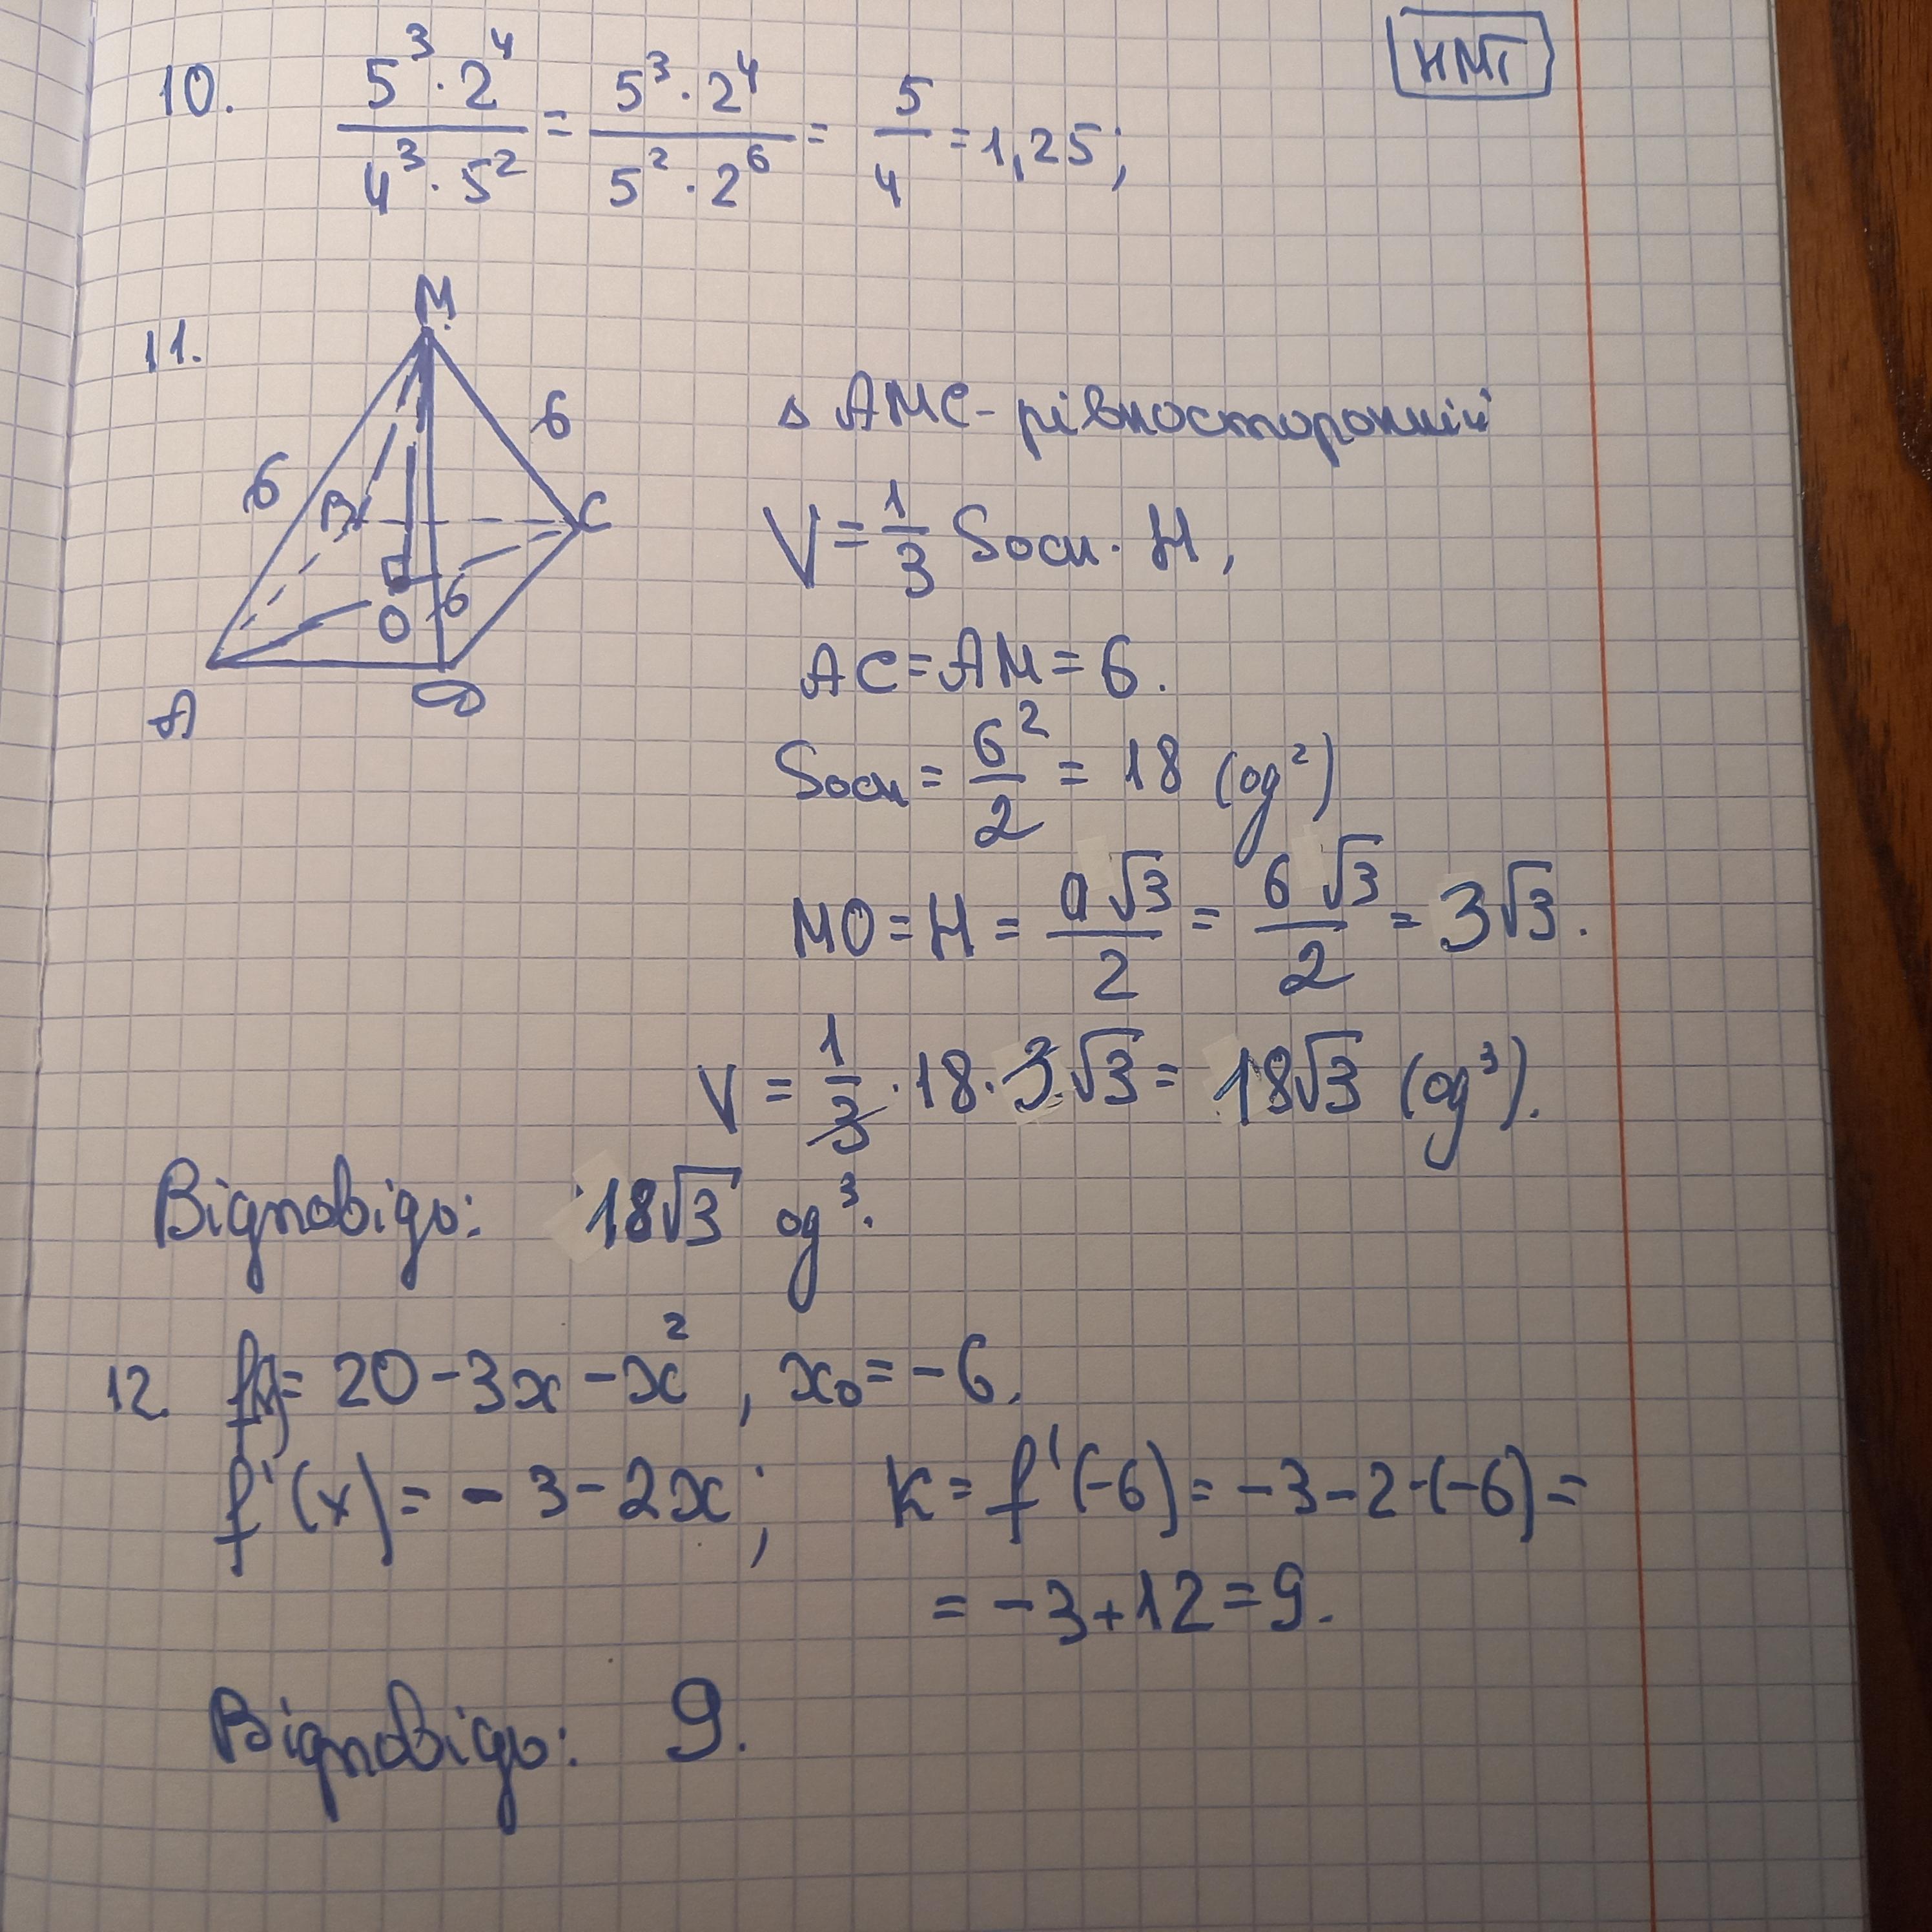 НМТ
10. 5³·2⁴ / 4³·5² = 5³·2⁴ / 5²·2⁶ = 5/4 = 1,25;
11.
M
6 6
B C
O 6
A D
△ AMC - рівносторонній
V = 1/3 Sосн. · H,
AC = AM = 6.
Sосн = 6²/2 = 18 (од²)
MO = H = a√3/2 = 6√3/2 = 3√3.
V = 1/3 · 18 · 3√3 = 18√3 (од³).
Відповідь: 18√3 од³.
12. f(x) = 20 - 3x - x², x₀ = -6.
f'(x) = - 3 - 2x; K = f'(-6) = -3 - 2·(-6) =
= -3 + 12 = 9.
Відповідь: 9.